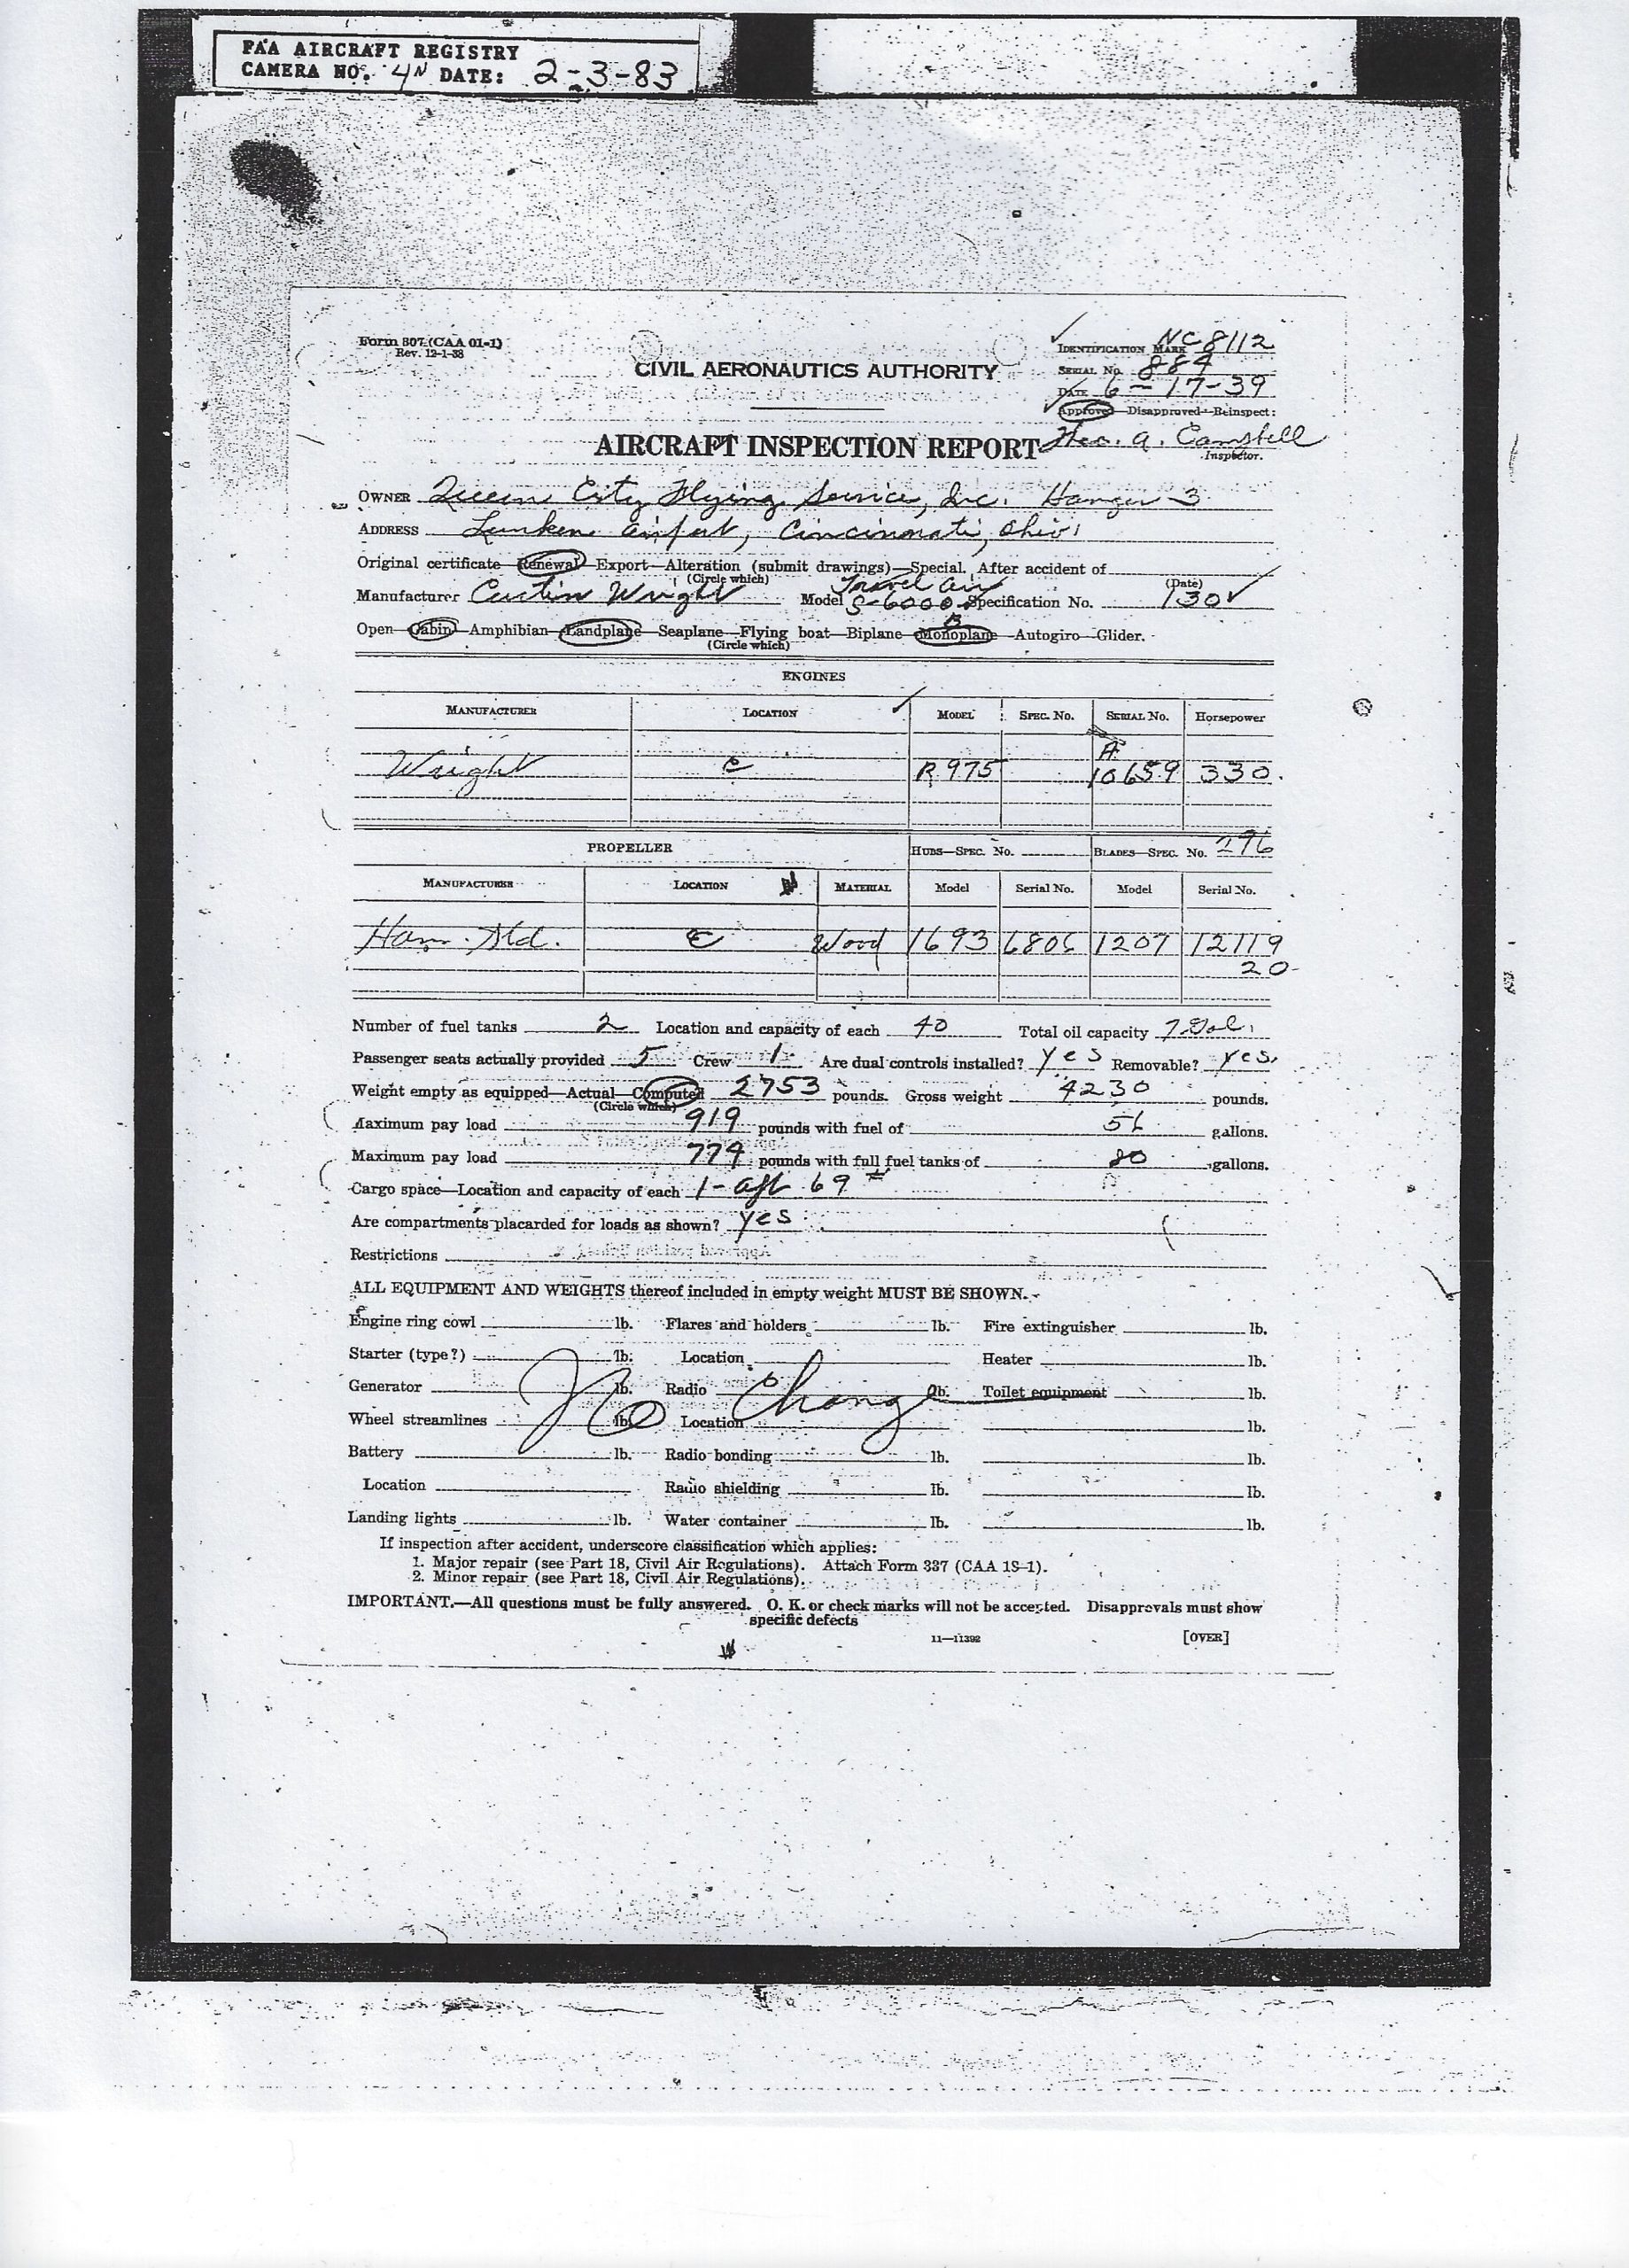 FAA AIRCRAFT REGISTRY
CAMERA NO. 4N DATE: 2-3-83
Form 307 (CAA 01-1)
Rev. 12-1-38
CIVIL AERONAUTICS AUTHORITY
IDENTIFICATION MARK NC8112
SERIAL No. 884
DATE 6-17-39
Approved—Disapproved—Reinspect:
A. Campbell
Inspector.
AIRCRAFT INSPECTION REPORT
OWNER Queen City Flying Service, Inc. Hanger 3
ADDRESS Lunken Airport, Cincinnati, Ohio
Original certificate—Renewal—Export—Alteration (submit drawings)—Special. After accident of
(Circle which) (Date)
Manufacturer Curtiss Wright Model Travel Air S-6000-B Specification No. 130
Open—Cabin—Amphibian—Landplane—Seaplane—Flying boat—Biplane—Monoplane—Autogiro—Glider.
(Circle which)
ENGINES
MANUFACTURER LOCATION MODEL SPEC. No. SERIAL No. Horsepower
Wright C R975 A 10659 330.
PROPELLER HUBS—SPEC. No. BLADES—SPEC. No. 296
MANUFACTURER LOCATION MATERIAL Model Serial No. Model Serial No.
Ham. Std. C Wood 1693 6806 1207 12119
20
Number of fuel tanks 2 Location and capacity of each 40 Total oil capacity 7 Gal.
Passenger seats actually provided 5 Crew 1 Are dual controls installed? yes Removable? yes.
Weight empty as equipped—Actual—Computed 2753 pounds. Gross weight 4230 pounds.
(Circle which)
Maximum pay load 919 pounds with fuel of 56 gallons.
Maximum pay load 774 pounds with full fuel tanks of 80 gallons.
Cargo space—Location and capacity of each 1- aft 69 #
Are compartments placarded for loads as shown? yes
Restrictions
ALL EQUIPMENT AND WEIGHTS thereof included in empty weight MUST BE SHOWN.
Engine ring cowl lb. Flares and holders lb. Fire extinguisher lb.
Starter (type?) lb. Location Heater lb.
Generator lb. Radio lb. Toilet equipment lb.
No Change
Wheel streamlines lb. Location lb.
Battery lb. Radio bonding lb. lb.
Location Radio shielding lb. lb.
Landing lights lb. Water container lb. lb.
If inspection after accident, underscore classification which applies:
1. Major repair (see Part 18, Civil Air Regulations). Attach Form 337 (CAA 18-1).
2. Minor repair (see Part 18, Civil Air Regulations).
IMPORTANT.—All questions must be fully answered. O. K. or check marks will not be accepted. Disapprovals must show
specific defects
11—11392 [OVER]